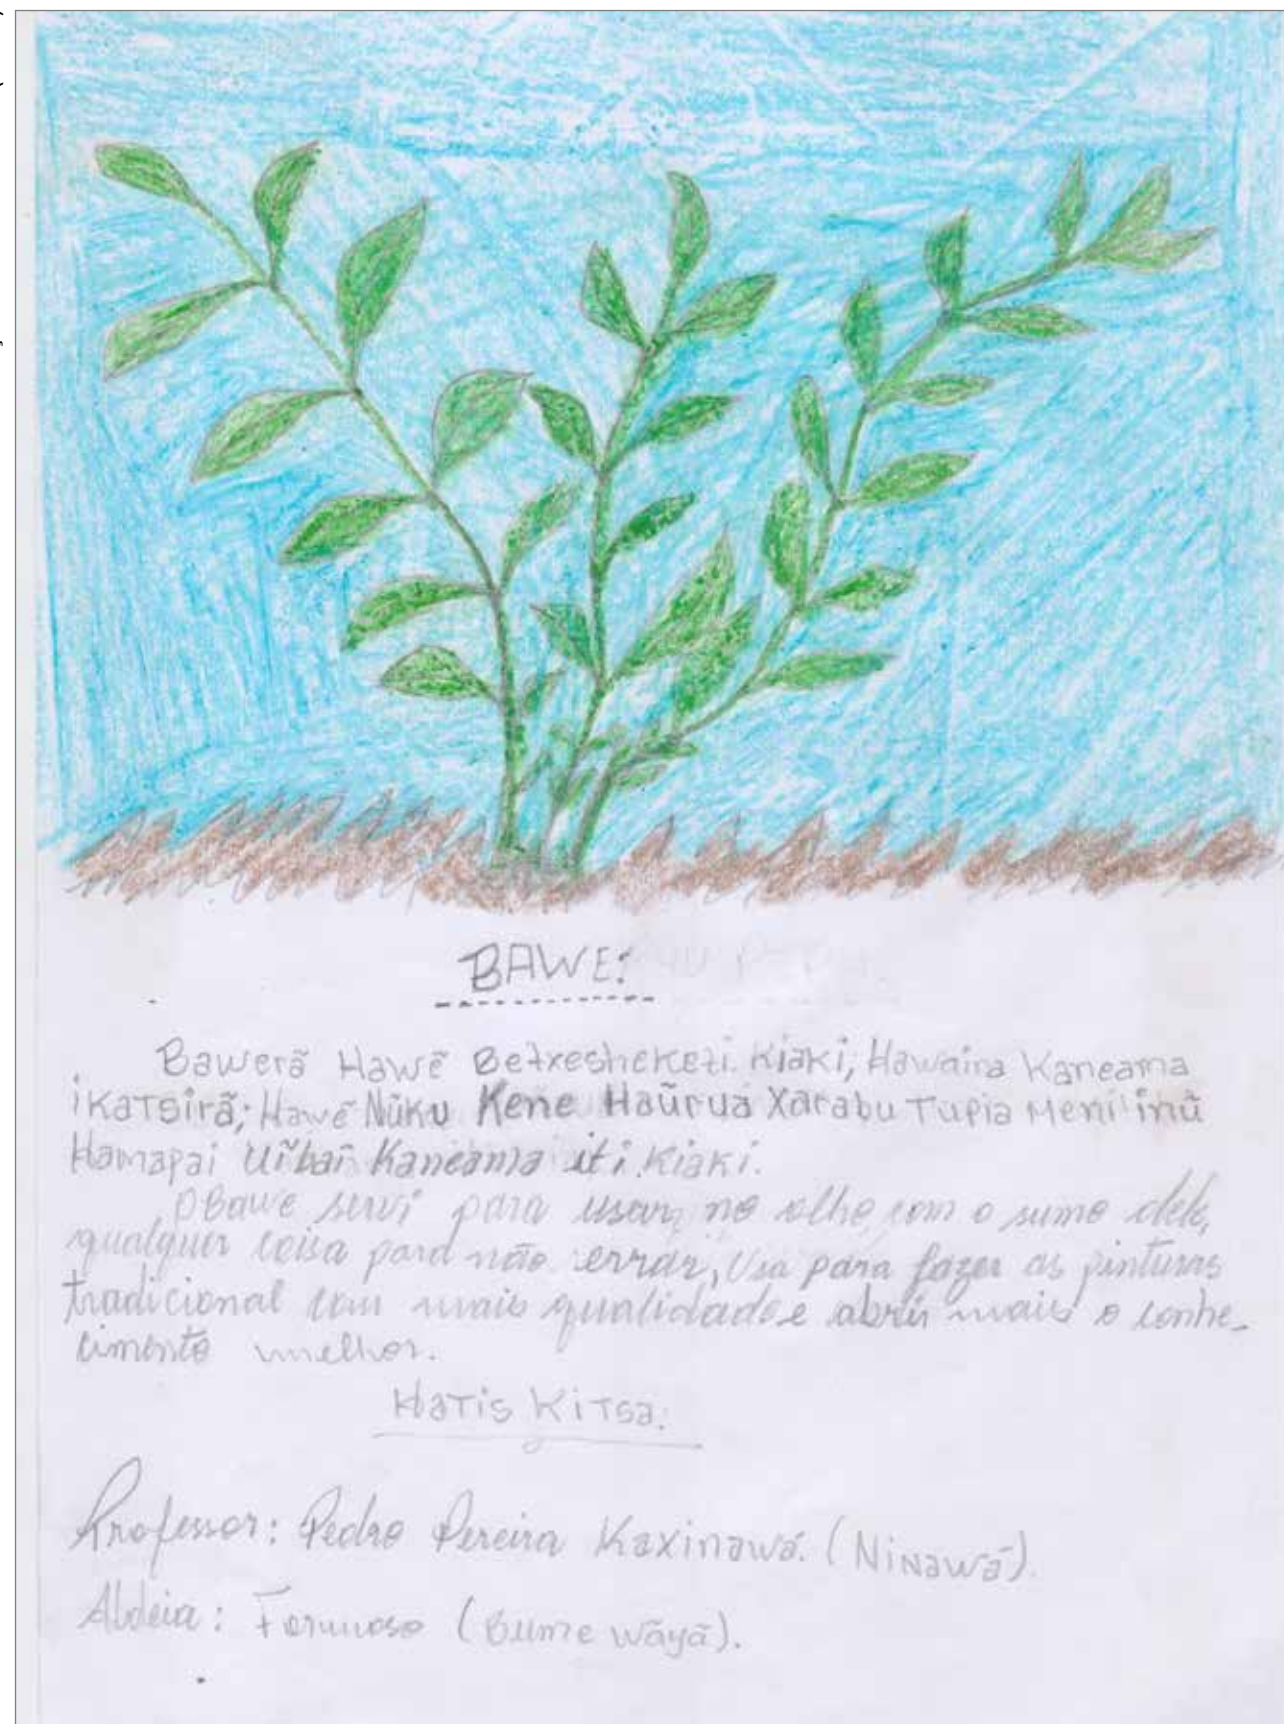 BAWE:
Bawerã Hawẽ Betxesheketi Kiaki, Hawaira Kaneama
ikatsirã; Hawẽ Nũku Kene Haũrua Xarabu Tupia Meni inũ
Hamapai Kaneama iti Kiaki.
O Bawe servi para usar no olho, com o sumo dele,
qualquer coisa para não errar, Usa para fazer as pinturas
tradicional com mais qualidade e abrir mais o conhe-
cimento melhor.
Hatis Kitsa.
Professor: Pedro Pereira Kaxinawá. (Ninawá).
Aldeia: Formoso (Bume wãyã).